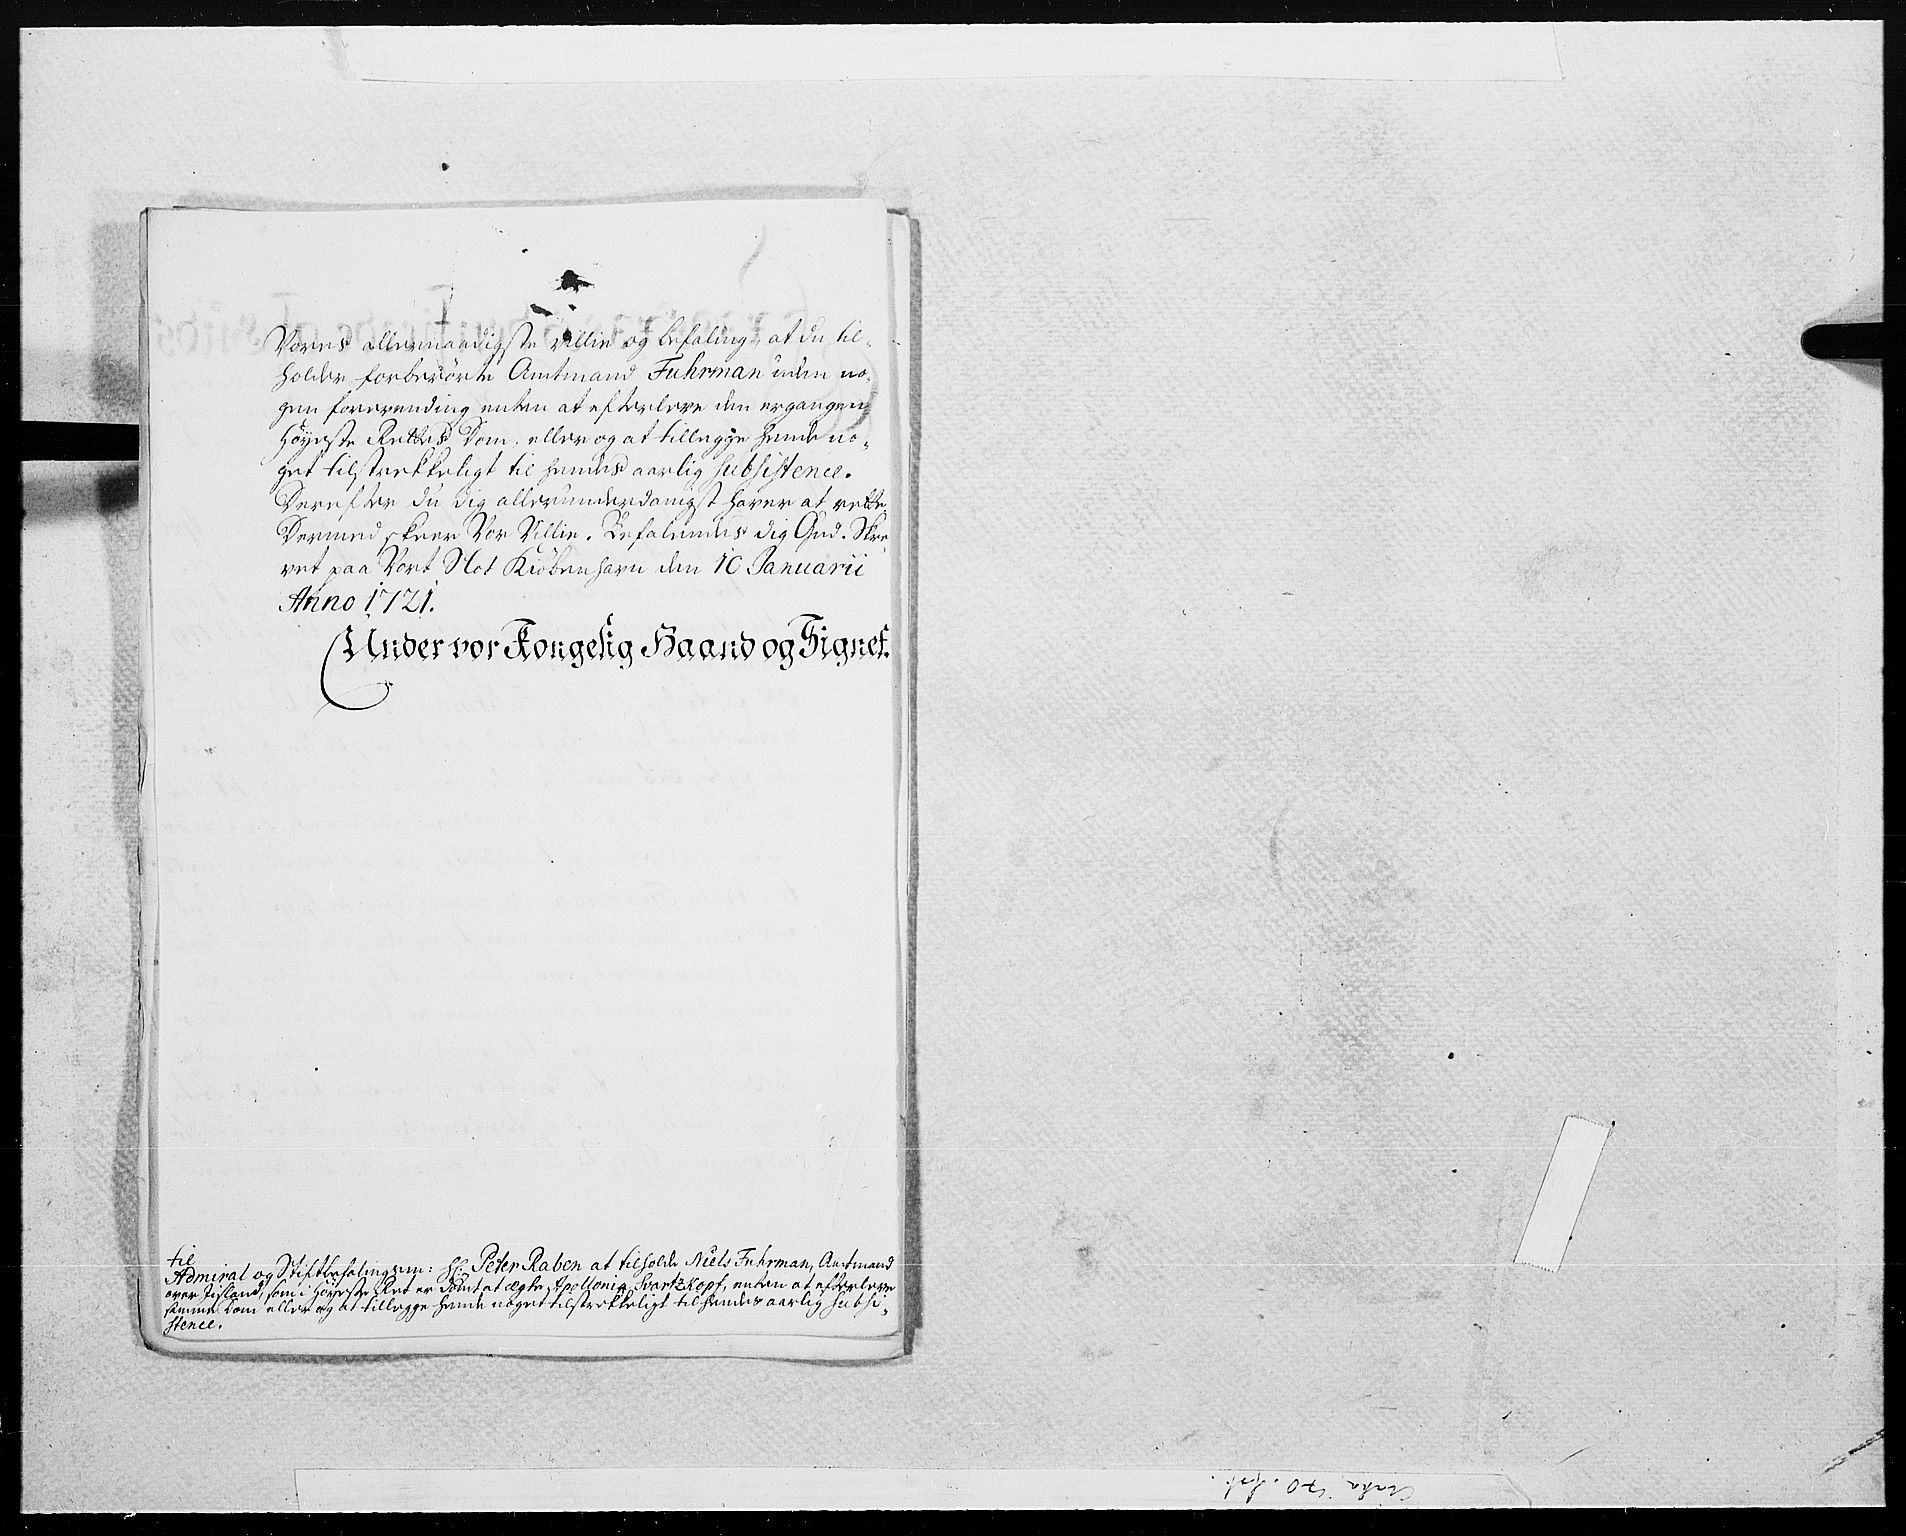 Vores allernaadigste villie og befaling, at du til-
holder forberørte Amtmand Fuhrman uden no-
gen forevending enten at efterleve den ergangen
Høyeste Rettes Dom. eller og at tillegge hende no-
get tilstrekkeligt til hendes aarlig subsistence.
Derefter du dig allerunderdanigst haver at rette,
Dermed skeer Vor Villie. Befalendes dig Gud. Skre-
vet paa Vort Slot Kiøbenhavn den 10 Januarii
Anno 1721.
Under vor Kongelig Haand og Signet.
til
Admiral og Stiftbefalingsm: Hr: Peter Raben at tilholde Niels Fuhrman, Amtmand
over Iisland, som i Høyeste Ret er Dømt at ægte Apollonia Svartzkopf, enten at efterleve
samme Dom eller og at tillegge hende noget tilstrekkeligt til hendes aarlig subsi-
stence.